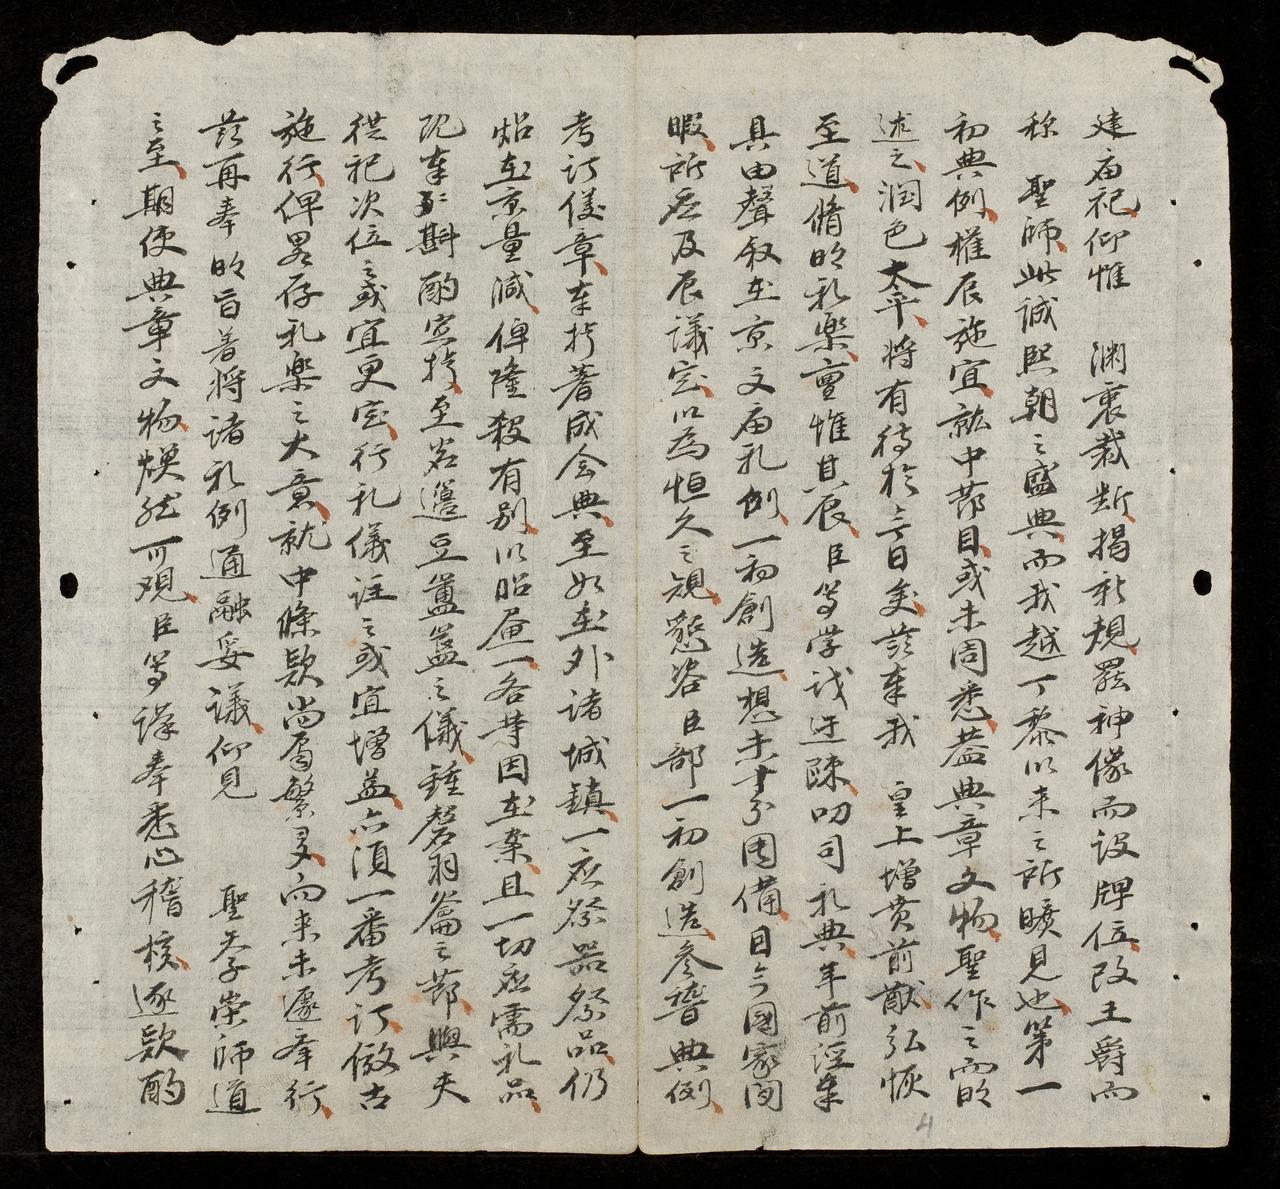 建庙祀仰惟 渊衷裁断揭新規罷神像而设牌位改王爵而
称 聖师此誠熙朝之盛典而我越丁黎以来之所曠見也第一
初典例權辰施宜就中節目或未周悉葢典章文物聖作之而明
述之潤色太平將有待於今日矣兹奉我 皇上增贲前猷弘恢
至道脩明礼樂亶惟其辰臣等学识迂疎叨司礼典年前 奉
具由聲叙在京文庙礼例一初創造想未 周備目今國家閒
暇所应及辰議定以為恒久之規懇咨臣部一初創造參詧典例
考订仪章奉抄著成会典至如在外诸城鎮一应祭器祭品仍
炤在京量减俾隆殺有别以昭 一各等因在案且一切应需礼品
斟酌定拟至若籩豆簠簋之儀鍾磬羽籥之節與夫
從祀次位之或宜更定行礼儀註之或宜增益亦須一番考订倣古
施行俾畧存礼樂之大意就中條欵尚属繁多向来未遽奉行
兹再奉明旨着將诸礼例通融妥議仰見 聖 崇师道
之至期使典章文物焕然可观臣等谨奉悉心稽核逐欵酌
4